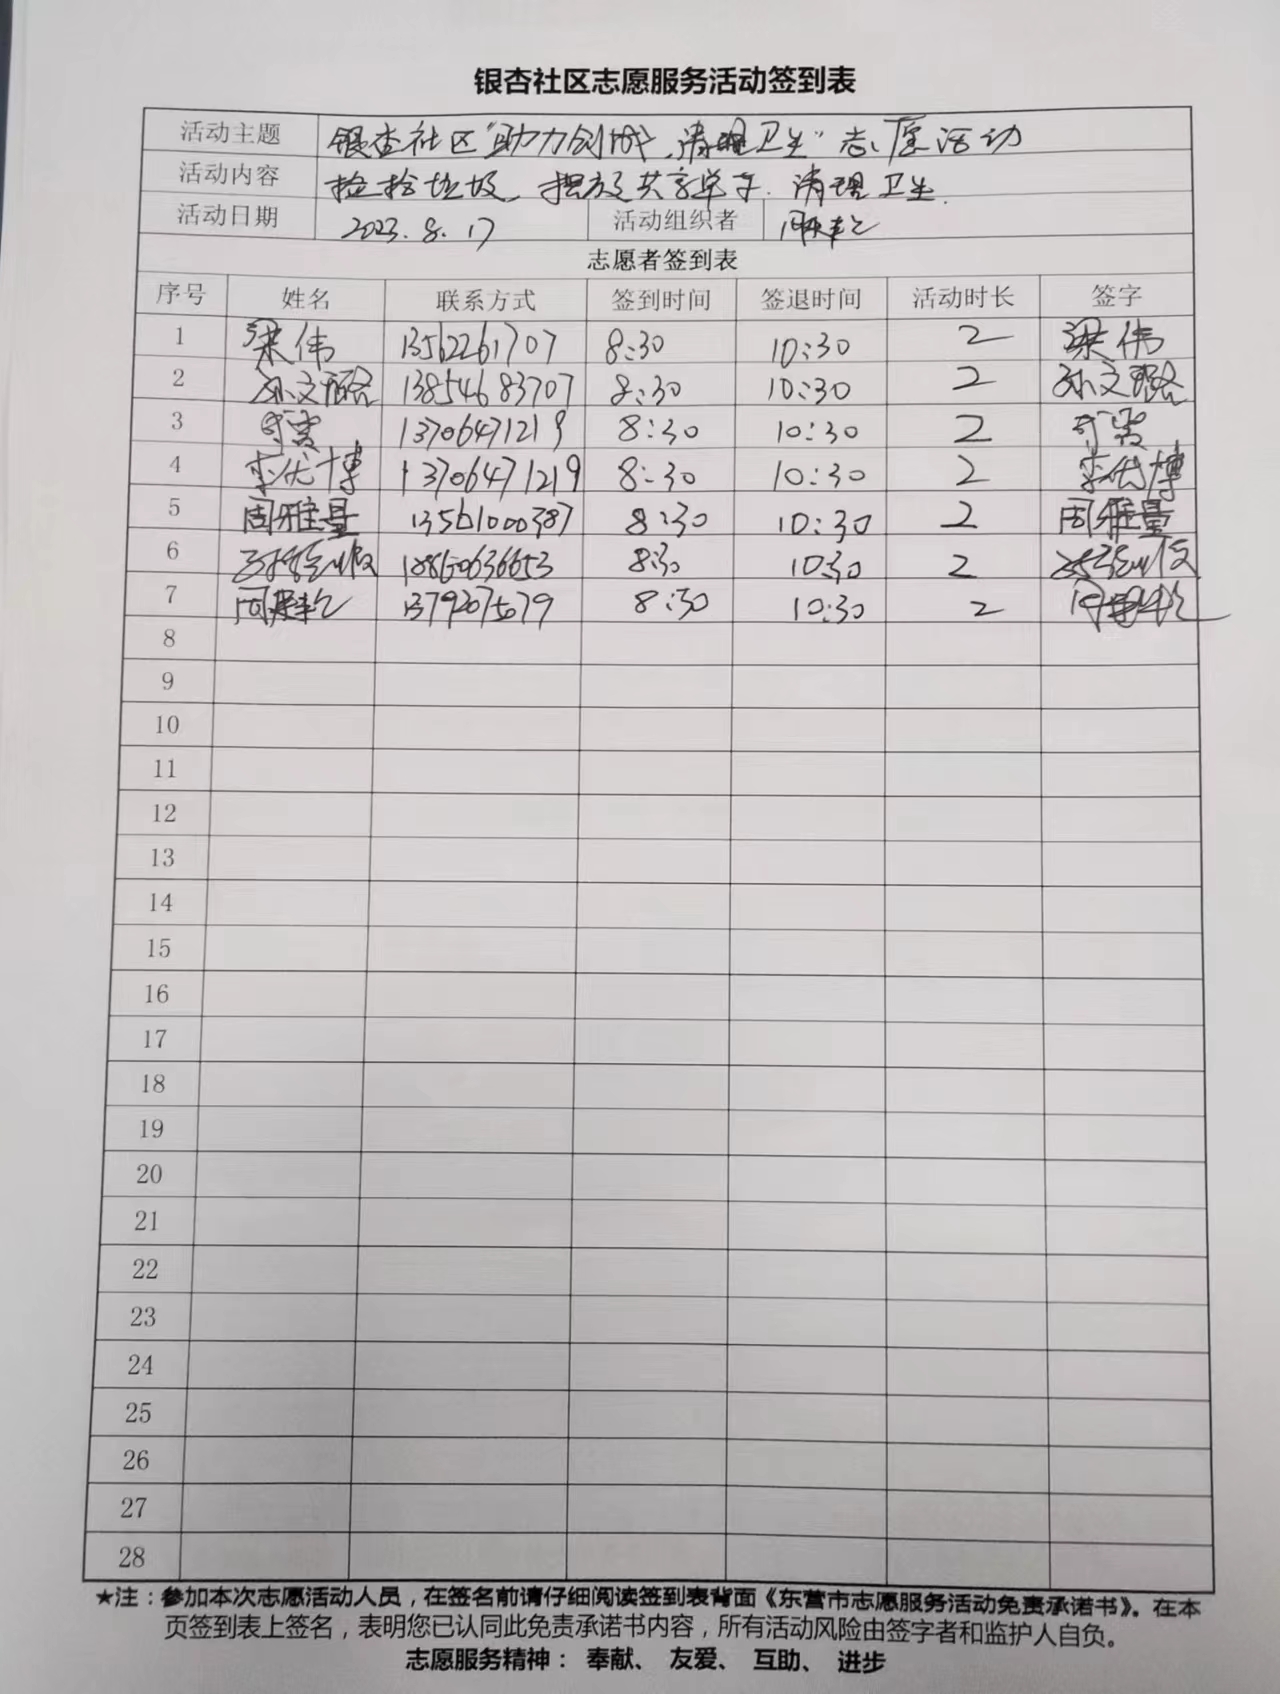 银杏社区志愿服务活动签到表
活动主题 银杏社区"助力创城、清理卫生"志愿活动
活动内容 捡拾垃圾、摆放共享单车、清理卫生.
活动日期 2023.8.17 活动组织者
志愿者签到表
序号 姓名 联系方式 签到时间 签退时间 活动时长 签字
1 梁伟 13562261707 8:30 10:30 2 梁伟
2 孙文璐 13854683707 8:30 10:30 2 孙文璐
3 13706471219 8:30 10:30 2
4 李优博 13706471219 8:30 10:30 2 李优博
5 周雅量 13561000387 8:30 10:30 2 周雅量
6 8:30 10:30 2
7 13792075079 8:30 10:30 2
8
9
10
11
12
13
14
15
16
17
18
19
20
21
22
23
24
25
26
27
28
★注：参加本次志愿活动人员，在签名前请仔细阅读签到表背面《东营市志愿服务活动免责承诺书》。在本
页签到表上签名，表明您已认同此免责承诺书内容，所有活动风险由签字者和监护人自负。
志愿服务精神： 奉献、 友爱、 互助、 进步